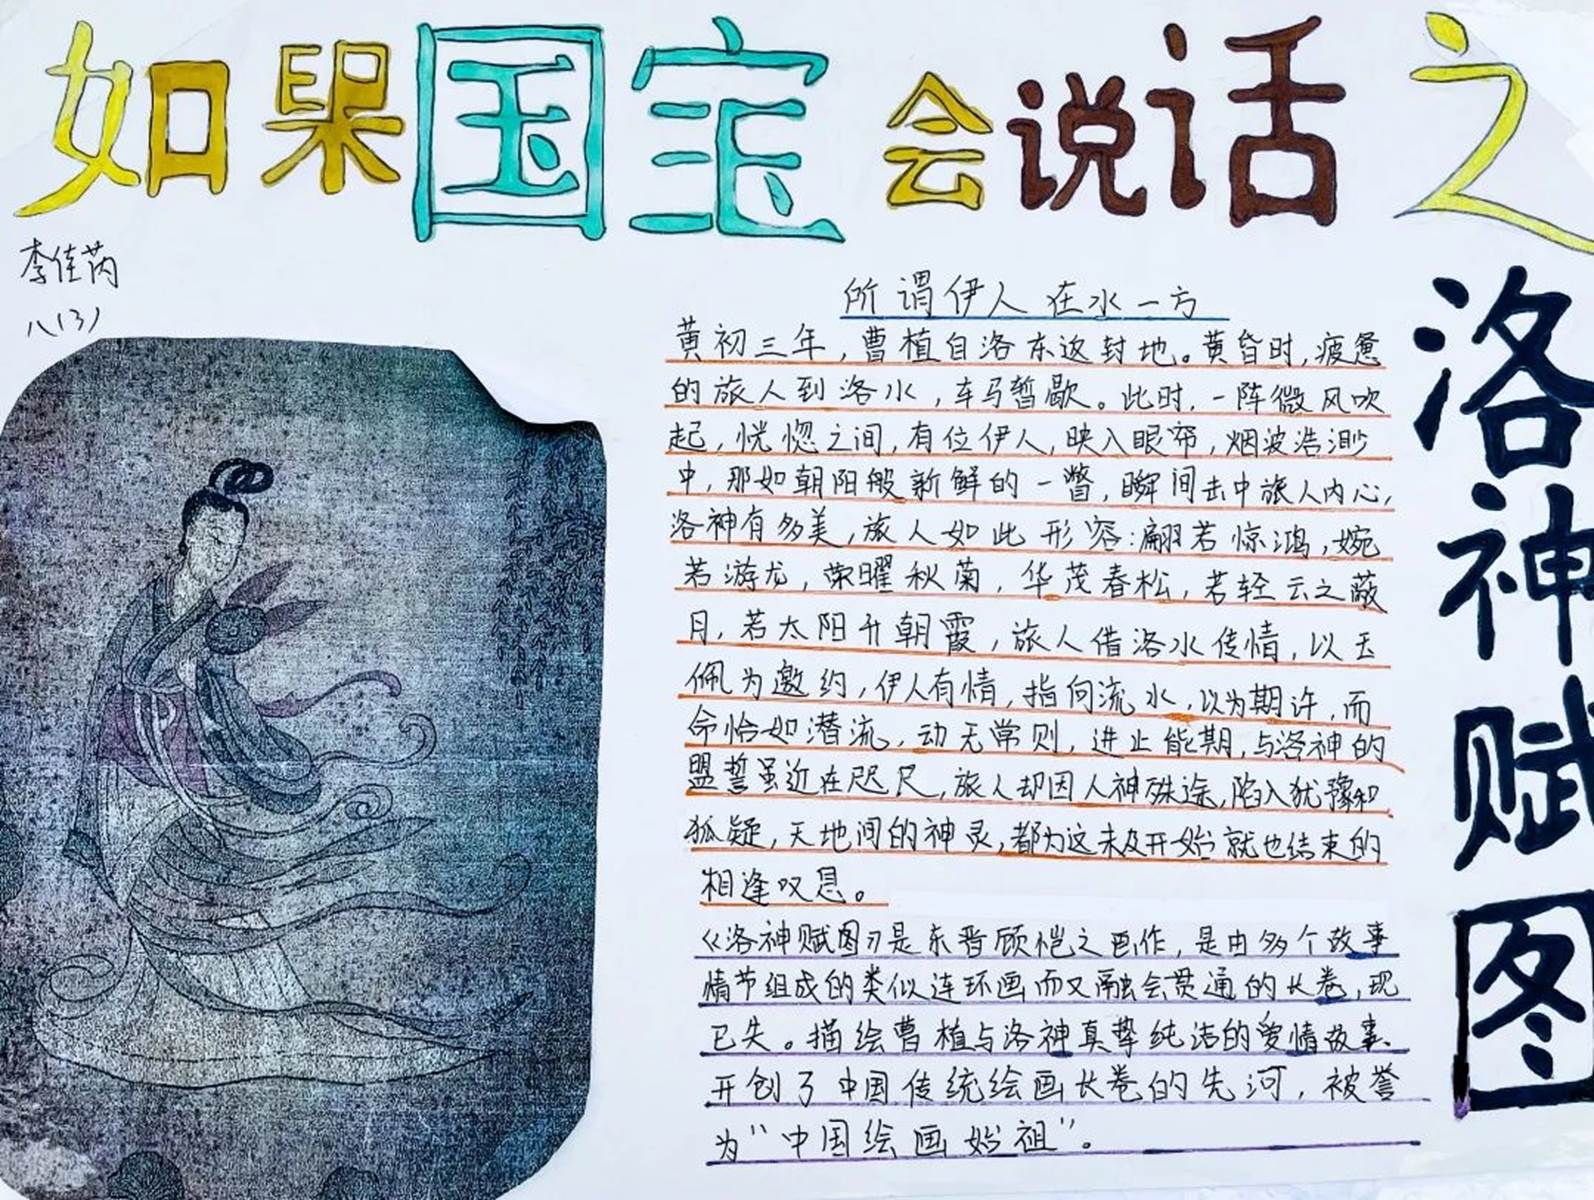 如果国宝会说话之
洛神赋图
李佳芮
八(3)
所谓伊人在水一方
黄初三年，曹植自洛东返封地。黄昏时，疲惫
的旅人到洛水，车马暂歇。此时，一阵微风吹
起，恍惚之间，有位伊人，映入眼帘，烟波浩渺
中，那如朝阳般新鲜的一瞥，瞬间击中旅人内心，
洛神有多美，旅人如此形容：翩若惊鸿，婉
若游龙，荣曜秋菊，华茂春松，若轻云之蔽
月，若太阳升朝霞，旅人借洛水传情，以玉
佩为邀约，伊人有情，指向流水，以为期许，而
命恰如潜流，动无常则，进止能期，与洛神的
盟誓虽近在咫尺，旅人却因人神殊途，陷入犹豫和
狐疑，天地间的神灵，都为这未及开始就也结束的
相逢叹息。
《洛神赋图》是东晋顾恺之画作，是由多个故事
情节组成的类似连环画而又融会贯通的长卷，现
已失。描绘曹植与洛神真挚纯洁的爱情故事、
开创了中国传统绘画长卷的先河，被誉
为“中国绘画始祖”。